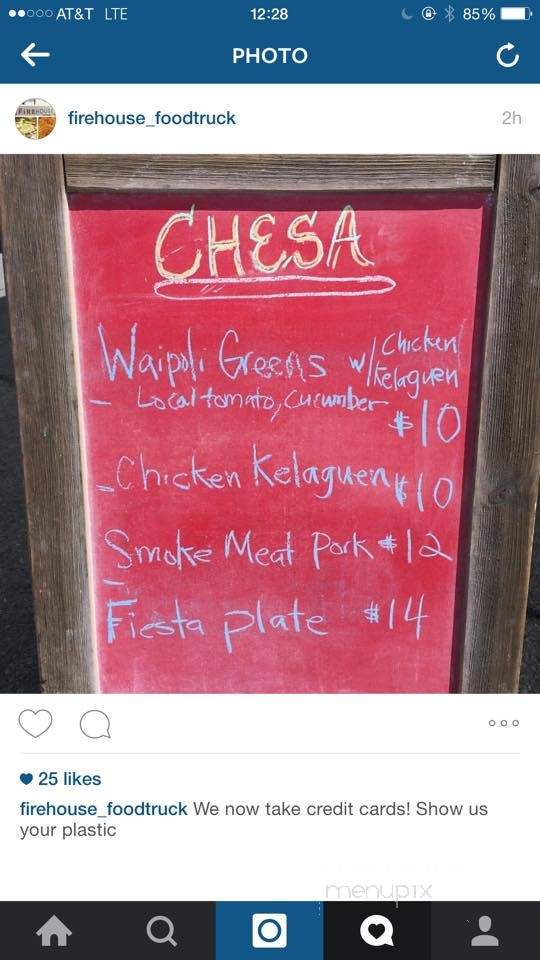 AT&T LTE 12:28 85%
PHOTO
FIREHOUSE
firehouse_foodtruck 2h
CHESA
Waipoli Greens w/ Chicken Kelaguen
- Local tomato, cucumber
$10
- Chicken Kelaguen $10
Smoke Meat Pork $12
Fiesta plate $14
25 likes
firehouse_foodtruck We now take credit cards! Show us
your plastic
menupix